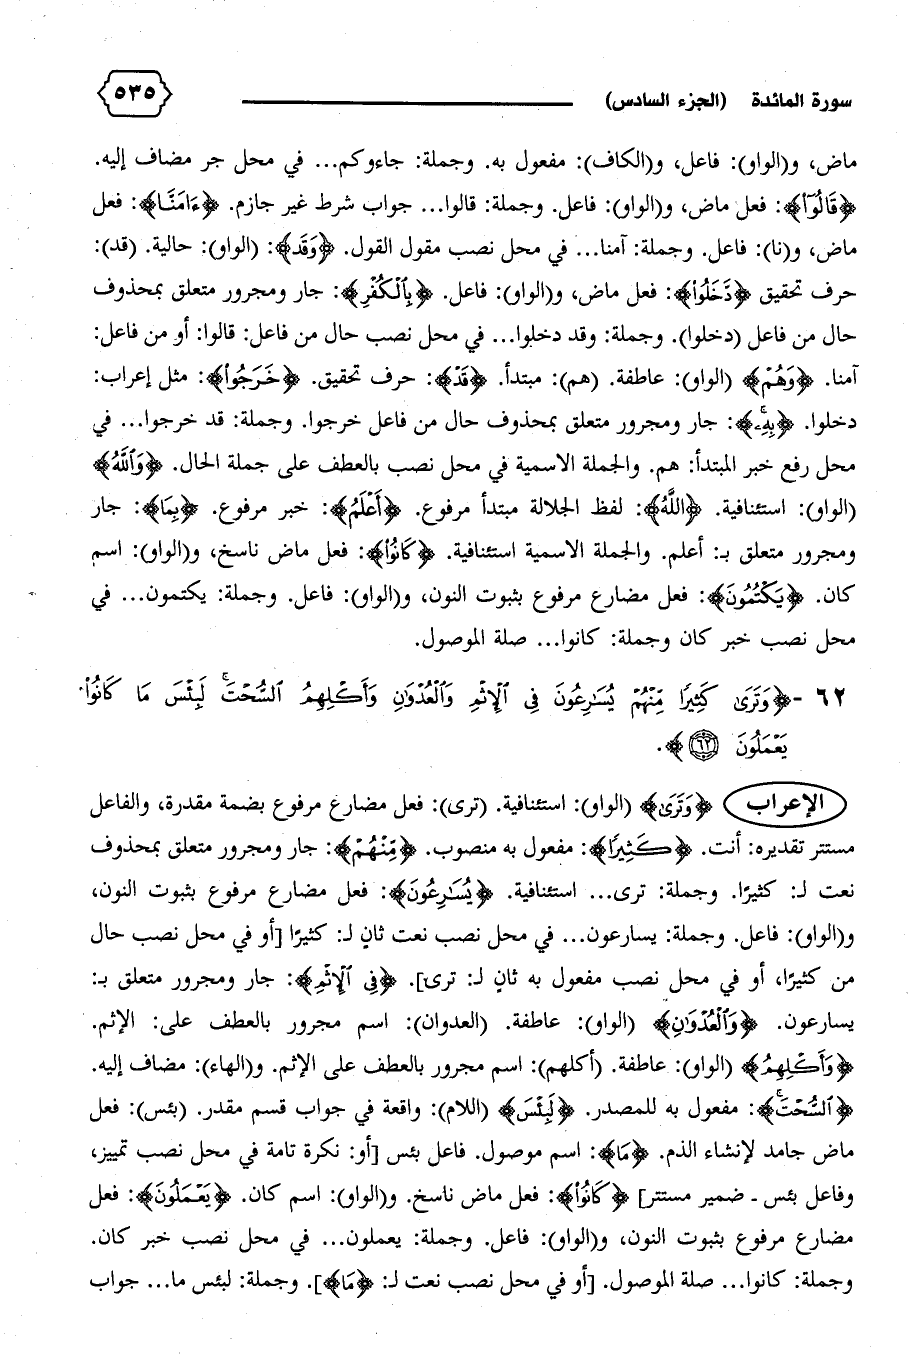 سورة المائدة (الجزء السادس) ٥٣٥
ماض، و(الواو): فاعل، و(الكاف): مفعول به. وجملة: جاءوكم... في محل جر مضاف إليه.
﴿قَالُوٓاْ﴾: فعل ماض، و(الواو): فاعل. وجملة: قالوا... جواب شرط غير جازم. ﴿ءَامَنَّا﴾: فعل
ماض، و(نا): فاعل. وجملة: آمنا... في محل نصب مقول القول. ﴿وَقَد﴾: (الواو): حالية. (قد):
حرف تحقيق ﴿دَّخَلُواْ﴾: فعل ماض، و(الواو): فاعل. ﴿بِٱلْكُفْرِ﴾: جار ومجرور متعلق بمحذوف
حال من فاعل (دخلوا). وجملة: وقد دخلوا... في محل نصب حال من فاعل: قالوا: أو من فاعل:
آمنا. ﴿وَهُمْ﴾ (الواو): عاطفة. (هم): مبتدأ. ﴿قَدْ﴾: حرف تحقيق. ﴿خَرَجُواْ﴾: مثل إعراب:
دخلوا. ﴿بِهِۦۚ﴾: جار ومجرور متعلق بمحذوف حال من فاعل خرجوا. وجملة: قد خرجوا... في
محل رفع خبر المبتدأ: هم. والجملة الاسمية في محل نصب بالعطف على جملة الحال. ﴿وَٱللَّهُ﴾
(الواو): استئنافية. ﴿اللَّهُ﴾: لفظ الجلالة مبتدأ مرفوع. ﴿أَعْلَمُ﴾: خبر مرفوع. ﴿بِمَا﴾: جار
ومجرور متعلق بـ: أعلم. والجملة الاسمية استئنافية. ﴿كَانُواْ﴾: فعل ماض ناسخ، و(الواو): اسم
كان. ﴿يَكْتُمُونَ﴾: فعل مضارع مرفوع بثبوت النون، و(الواو): فاعل. وجملة: يكتمون... في
محل نصب خبر كان وجملة: كانوا... صلة الموصول.
٦٢ - ﴿وَتَرَىٰ كَثِيرًا مِّنْهُمْ يُسَٰرِعُونَ فِي ٱلْإِثْمِ وَٱلْعُدْوَٰنِ وَأَكْلِهِمُ ٱلسُّحْتَۚ لَبِئْسَ مَا كَانُواْ
يَعْمَلُونَ ٦٢﴾.
الإعراب ﴿وَتَرَىٰ﴾ (الواو): استئنافية. (ترى): فعل مضارع مرفوع بضمة مقدرة، والفاعل
مستتر تقديره: أنت. ﴿كَثِيرًا﴾: مفعول به منصوب. ﴿مِّنْهُمْ﴾: جار ومجرور متعلق بمحذوف
نعت لـ: كثيرًا. وجملة: ترى... استئنافية. ﴿يُسَٰرِعُونَ﴾: فعل مضارع مرفوع بثبوت النون،
و(الواو): فاعل. وجملة: يسارعون... في محل نصب نعت ثانٍ لـ: كثيرًا [أو في محل نصب حال
من كثيرًا، أو في محل نصب مفعول به ثانٍ لـ: ترى]. ﴿فِي ٱلْإِثْمِ﴾: جار ومجرور متعلق بـ:
يسارعون. ﴿وَٱلْعُدْوَٰنِ﴾ (الواو): عاطفة. (العدوان): اسم مجرور بالعطف على: الإثم.
﴿وَأَكْلِهِمُ﴾ (الواو): عاطفة. (أكلهم): اسم مجرور بالعطف على الإثم. و(الهاء): مضاف إليه.
﴿ٱلسُّحْتَۚ﴾: مفعول به للمصدر. ﴿لَبِئْسَ﴾ (اللام): واقعة في جواب قسم مقدر. (بئس): فعل
ماض جامد لإنشاء الذم. ﴿مَا﴾: اسم موصول. فاعل بئس [أو: نكرة تامة في محل نصب تمييز،
وفاعل بئس - ضمير مستتر] ﴿كَانُواْ﴾: فعل ماض ناسخ. و(الواو): اسم كان. ﴿يَعْمَلُونَ﴾: فعل
مضارع مرفوع بثبوت النون، و(الواو): فاعل. وجملة: يعملون... في محل نصب خبر كان.
وجملة: كانوا... صلة الموصول. [أو في محل نصب نعت لـ: ﴿مَا﴾]. وجملة: لبئس ما... جواب